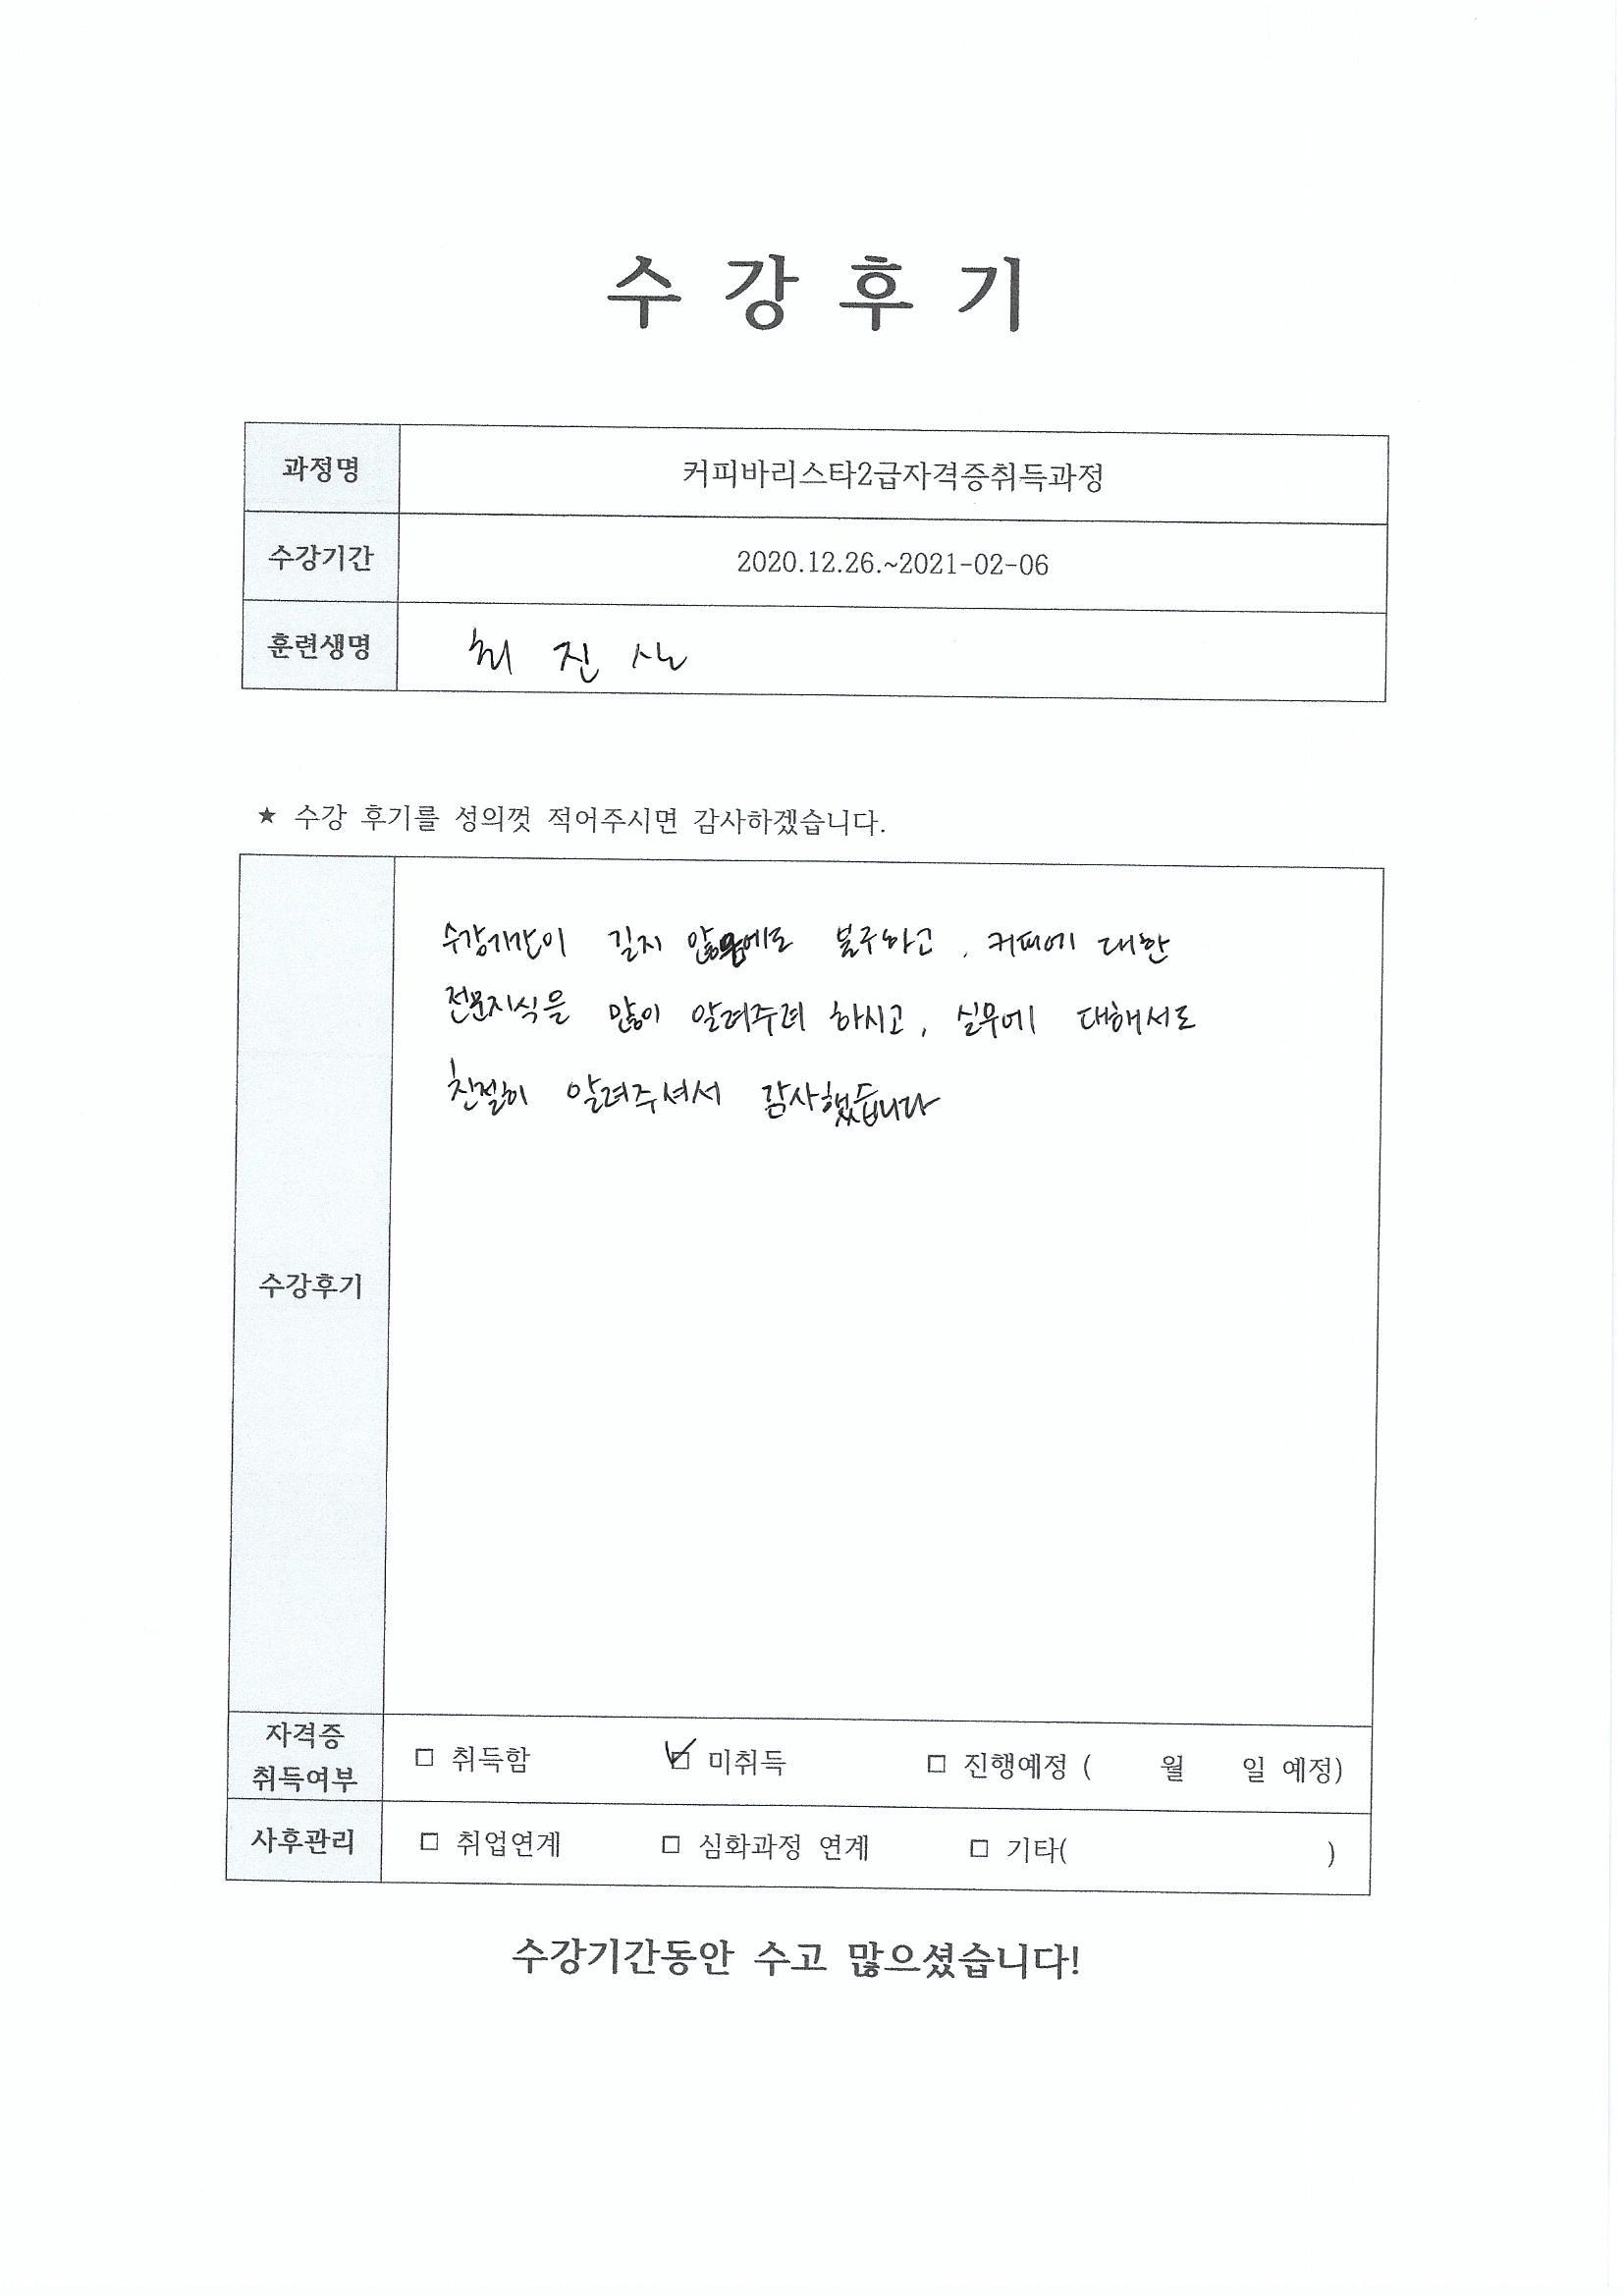 수 강 후 기
과정명 커피바리스타2급자격증취득과정
수강기간 2020.12.26.~2021-02-06
훈련생명 최 진
★ 수강 후기를 성의껏 적어주시면 감사하겠습니다.
수강기간이 길지 않음에도 불구하고, 커피에 대한
전문지식을 많이 알려주려 하시고, 실무에 대해서도
친절히 알려주셔서 감사했습니다
수강후기
자격증
취득여부
□ 취득함 ☑ 미취득 □ 진행예정 ( 월 일 예정)
사후관리 □ 취업연계 □ 심화과정 연계 □ 기타( )
수강기간동안 수고 많으셨습니다!